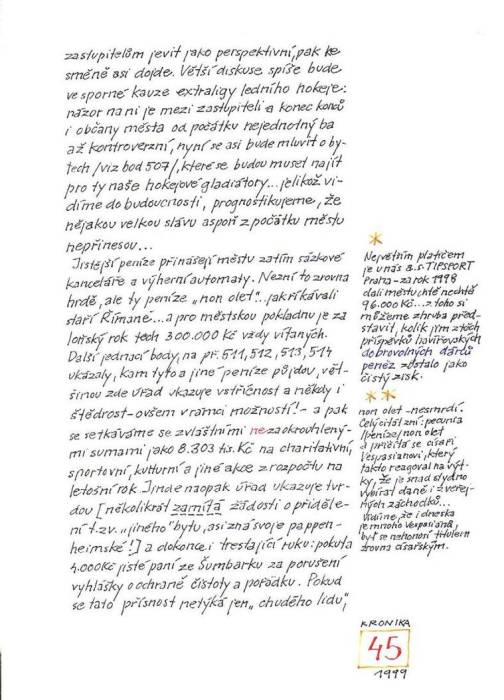 zastupitelům jevit jako perspektivní, pak ke
směně asi dojde. Větší diskuse spíše bude
ve sporné kauze extraligy ledního hokeje:
názor na ni je mezi zastupiteli a konec konců
i občany města od počátku nejednotný ba
až kontroverzní, nyní se asi bude mluvit o by-
tech /viz bod 507/, které se budou muset najít
pro ty naše hokejové gladiátory... jelikož vi-
díme do budoucnosti, prognostikujeme, že
nějakou velkou slávu aspoň z počátku městu
nepřinesou...
Jistější peníze přinášejí městu zatím sázkové
kanceláře a výherní automaty. Nezní to zrovna
hrdě, ale ty peníze „non olet".. jak říkávali
staří Římané... a pro městskou pokladnu je za
loňský rok těch 300.000 Kč vždy vítaných.
Další jednací body, na př. 511, 512, 513, 514
ukázaly, kam tyto a jiné peníze půjdou, vět-
šinou zde úřad ukazuje vstřícnost a někdy i
štědrost - ovšem v rámci možností! - a pak
se setkáváme se zvláštními nezaokrouhlený-
mi sumami jako 8.303 tis. Kč na charitativní,
sportovní, kulturní a jiné akce z rozpočtu na
letošní rok. Jinde naopak úřad ukazuje tvr-
dou [několikrát zamítá žádosti o přiděle-
ní t.zv. „jiného" bytu, asi zná svoje pappen-
heimské!] a dokonce i trestající ruku: pokuta
4.000 Kč jisté paní ze Šumbarku za porušení
vyhlášky o ochraně čistoty a pořádku. Pokud
se tato přísnost netýká jen „chudého lidu",
*
Největším platičem
je u nás a.s. TIPSPORT
Praha - za rok 1998
dali městu, chtě nechtě
96.000 Kč... z toho si
můžeme zhruba před-
stavit, kolik jim z těch
příspěvků
dobrovolných dárců
peněz zůstalo jako
čistý zisk.
* *
non olet - nesmrdí.
Celý citát zní: pecunia
/peníze/ non olet
a přičítá se císaři
Vespasianovi, který
takto reagoval na výt-
ky, že je snad stydno
vybírat daně i z veřej-
ných záchodků...
Vidíme, že i dneska
je mnoho Vespasiánů,
byť se nehonosí titulem
zrovna císařským.
KRONIKA
45
1999